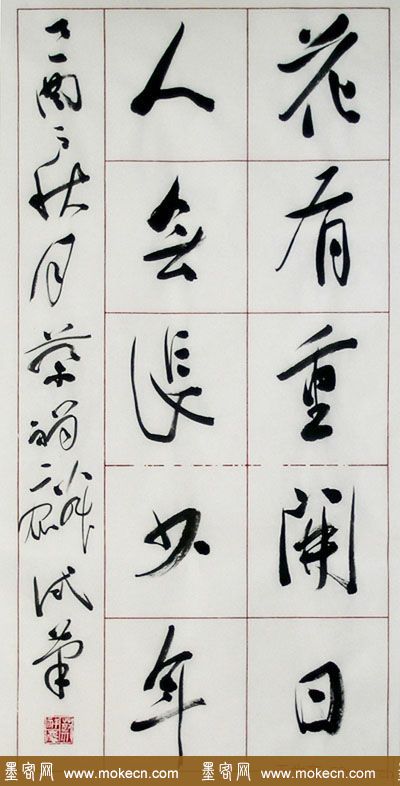 花有重開日
人無長少年
丁酉之秋月蔡 試筆
墨客网 www.mokecn.com 墨客网 www.mokecn.com